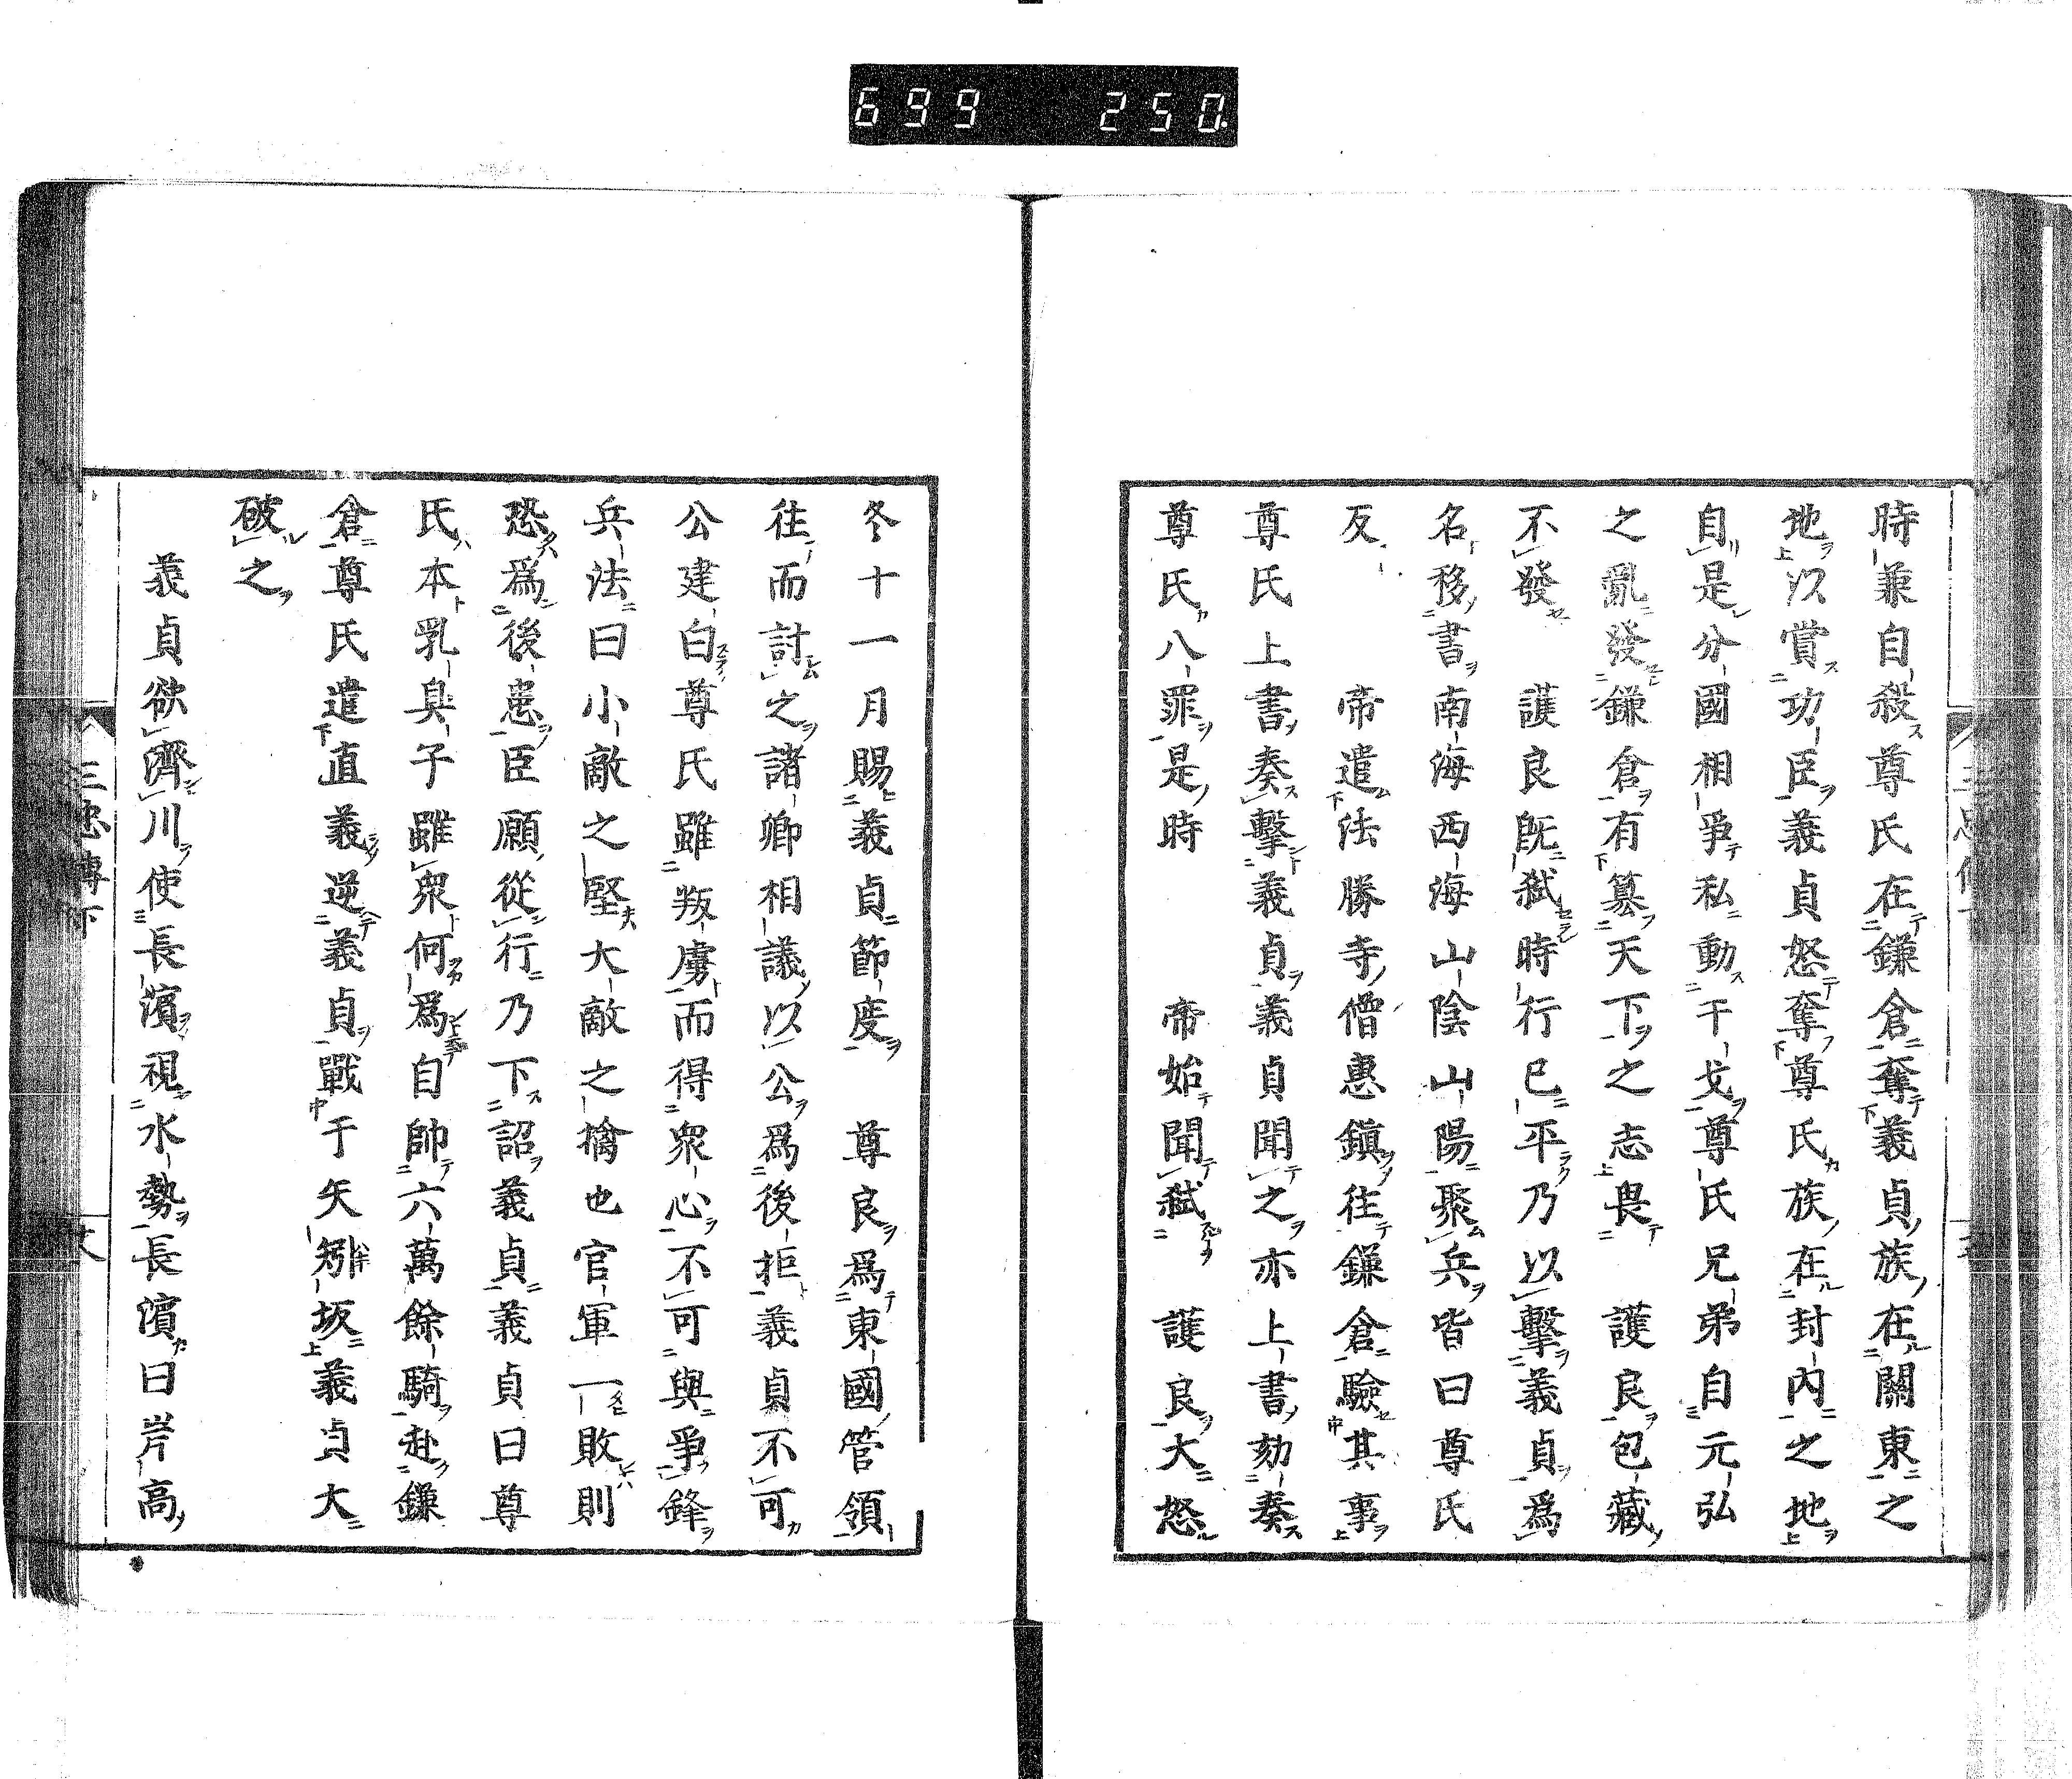 699 250.
時兼自殺尊氏在鎌倉奪義貞族在關東之
地以賞功臣義貞怒奪尊氏族在封內之地
自是分國相爭私動干戈尊氏兄弟自元弘
之亂發鎌倉有簒天下之志畏　護良包藏
不發　護良既弑時行已平乃以擊義貞爲
名移書南海西海山陰山陽聚兵皆曰尊氏
反　帝遣法勝寺僧惠鎭往鎌倉驗其事
尊氏上書奏擊義貞義貞聞之亦上書劾奏
尊氏八罪是時　帝始聞弑　護良大怒
冬十一月賜義貞節度　尊良爲東國管領
往而討之諸卿相議以公爲後拒義貞不可
公建白尊氏雖叛虜而得衆心不可與爭鋒
兵法曰小敵之堅大敵之擒也官軍一敗則
恐爲後患臣願從行乃下詔義貞義貞曰尊
氏本乳臭子雖衆何爲自帥六萬餘騎赴鎌
倉尊氏遣直義逆義貞戰于矢矧坂義貞大
破之
義貞欲濟川使長濱視水勢長濱曰岸高
三忠傳下